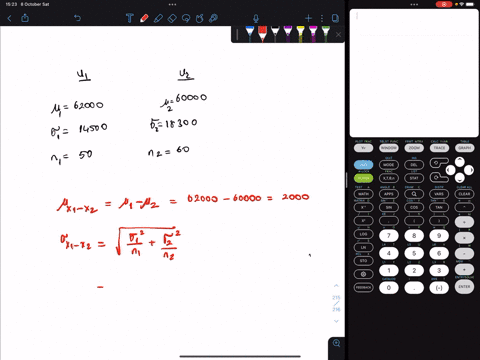 15:23 8 October Sat
U₁ U₂
μ₁ = 62000 μ₂ = 60000
σ₁ = 14500 σ₂ = 18300
n₁ = 50 n₂ = 60
μx₁-x₂ = μ₁ - μ₂ = 62000 - 60000 = 2000
σx₁-x₂ = √(σ₁²/n₁ + σ₂²/n₂)
=
215
216
WINDOW ZOOM TRACE GRAPH
DEL
STAT
MATH APPS PRGM VARS CLEAR
SIN COS TAN
LOG 7 8 9
LN 4 5 6
STO 1 2 3
0 . (-)